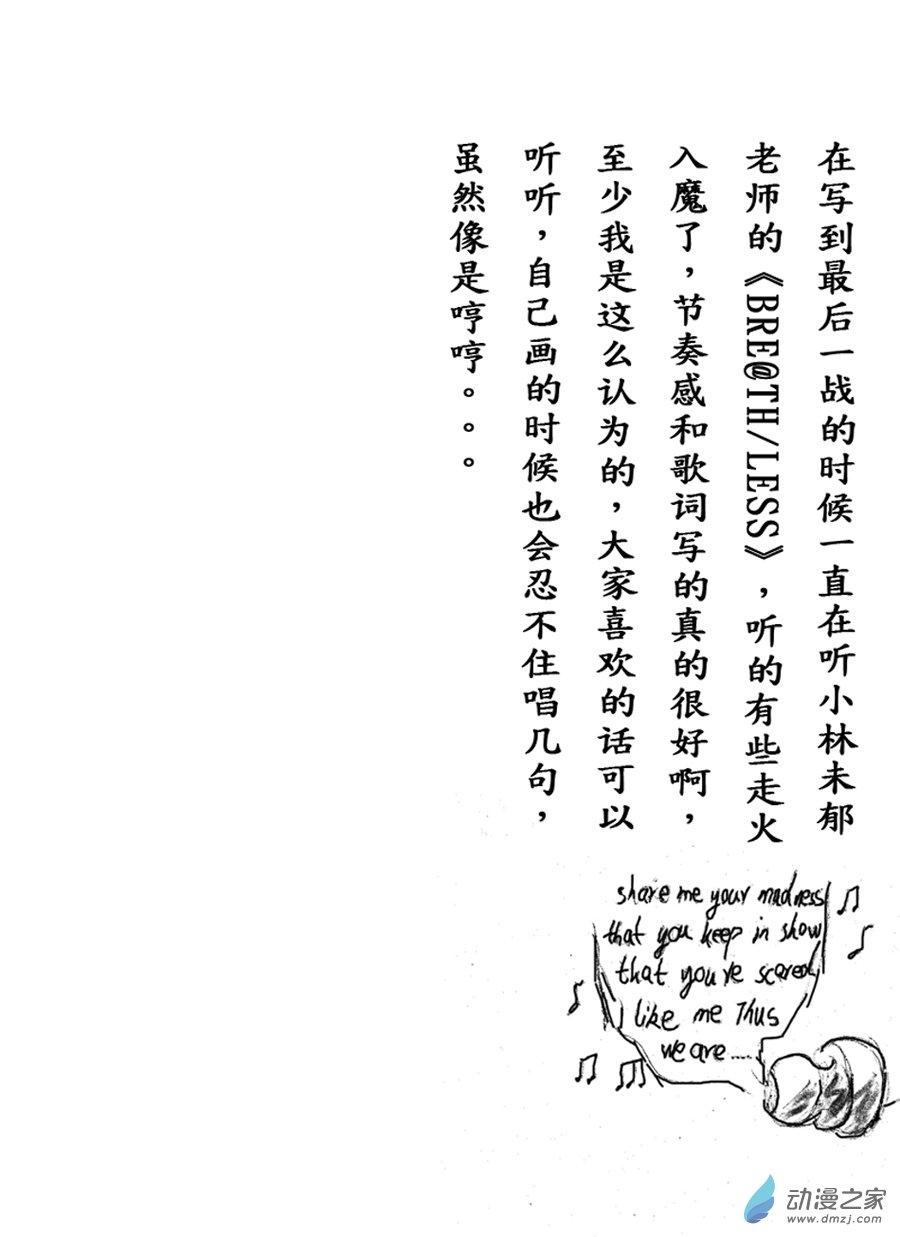 在写到最后一战的时候一直在听小林未郁
老师的《BRE@TH/LESS》，听的有些走火
入魔了，节奏感和歌词写的真的很好啊，
至少我是这么认为的，大家喜欢的话可以
听听，自己画的时候也会忍不住唱几句，
虽然像是哼哼。。。
share me your madness
that you keep in show
that you've scared
I like me Thus
we are.....
动漫之家
www.dmzj.com